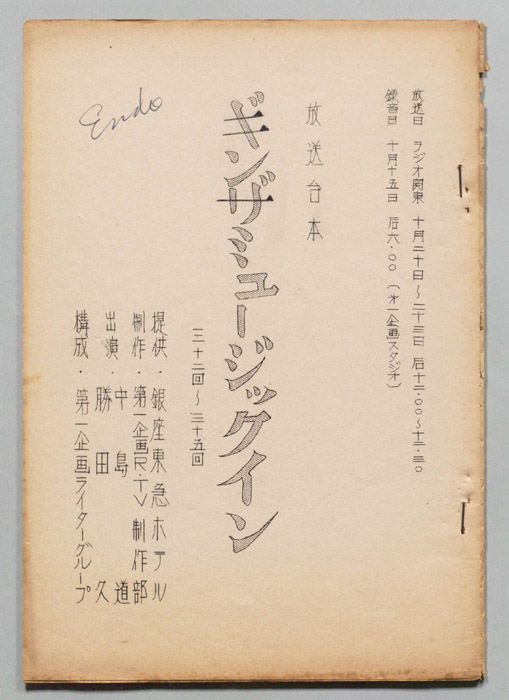 放送日 ラジオ関東 十月二十日～二十三日 后十二・〇〇～十二・三〇
録音日 十月十五日 后六・〇〇 (才一企画スタジオ)
放送台本
ギンザミュージックイン
三十二回～三十五回
提供・銀座東急ホテル
制作・第一企画R・TV制作部
出演・中島道
勝田久
構成・第一企画ライターグループ
Endo